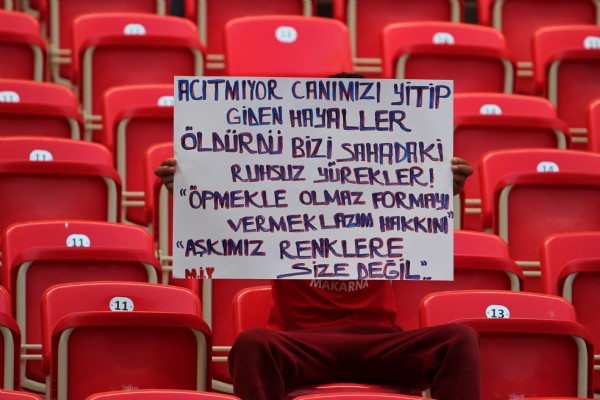 13
14
11
13
ACITMIYOR CANIMIZI YİTİP
GİDEN HAYALLER
ÖLDÜRDÜ BİZİ SAHADAKİ
RUHSUZ YÜREKLER!
"ÖPMEKLE OLMAZ FORMAYI
VERMEKLAZIM HAKKINI"
"AŞKIMIZ RENKLERE
SİZE DEĞİL"..
M.Y
11
14
11
MAKARNA
11
13